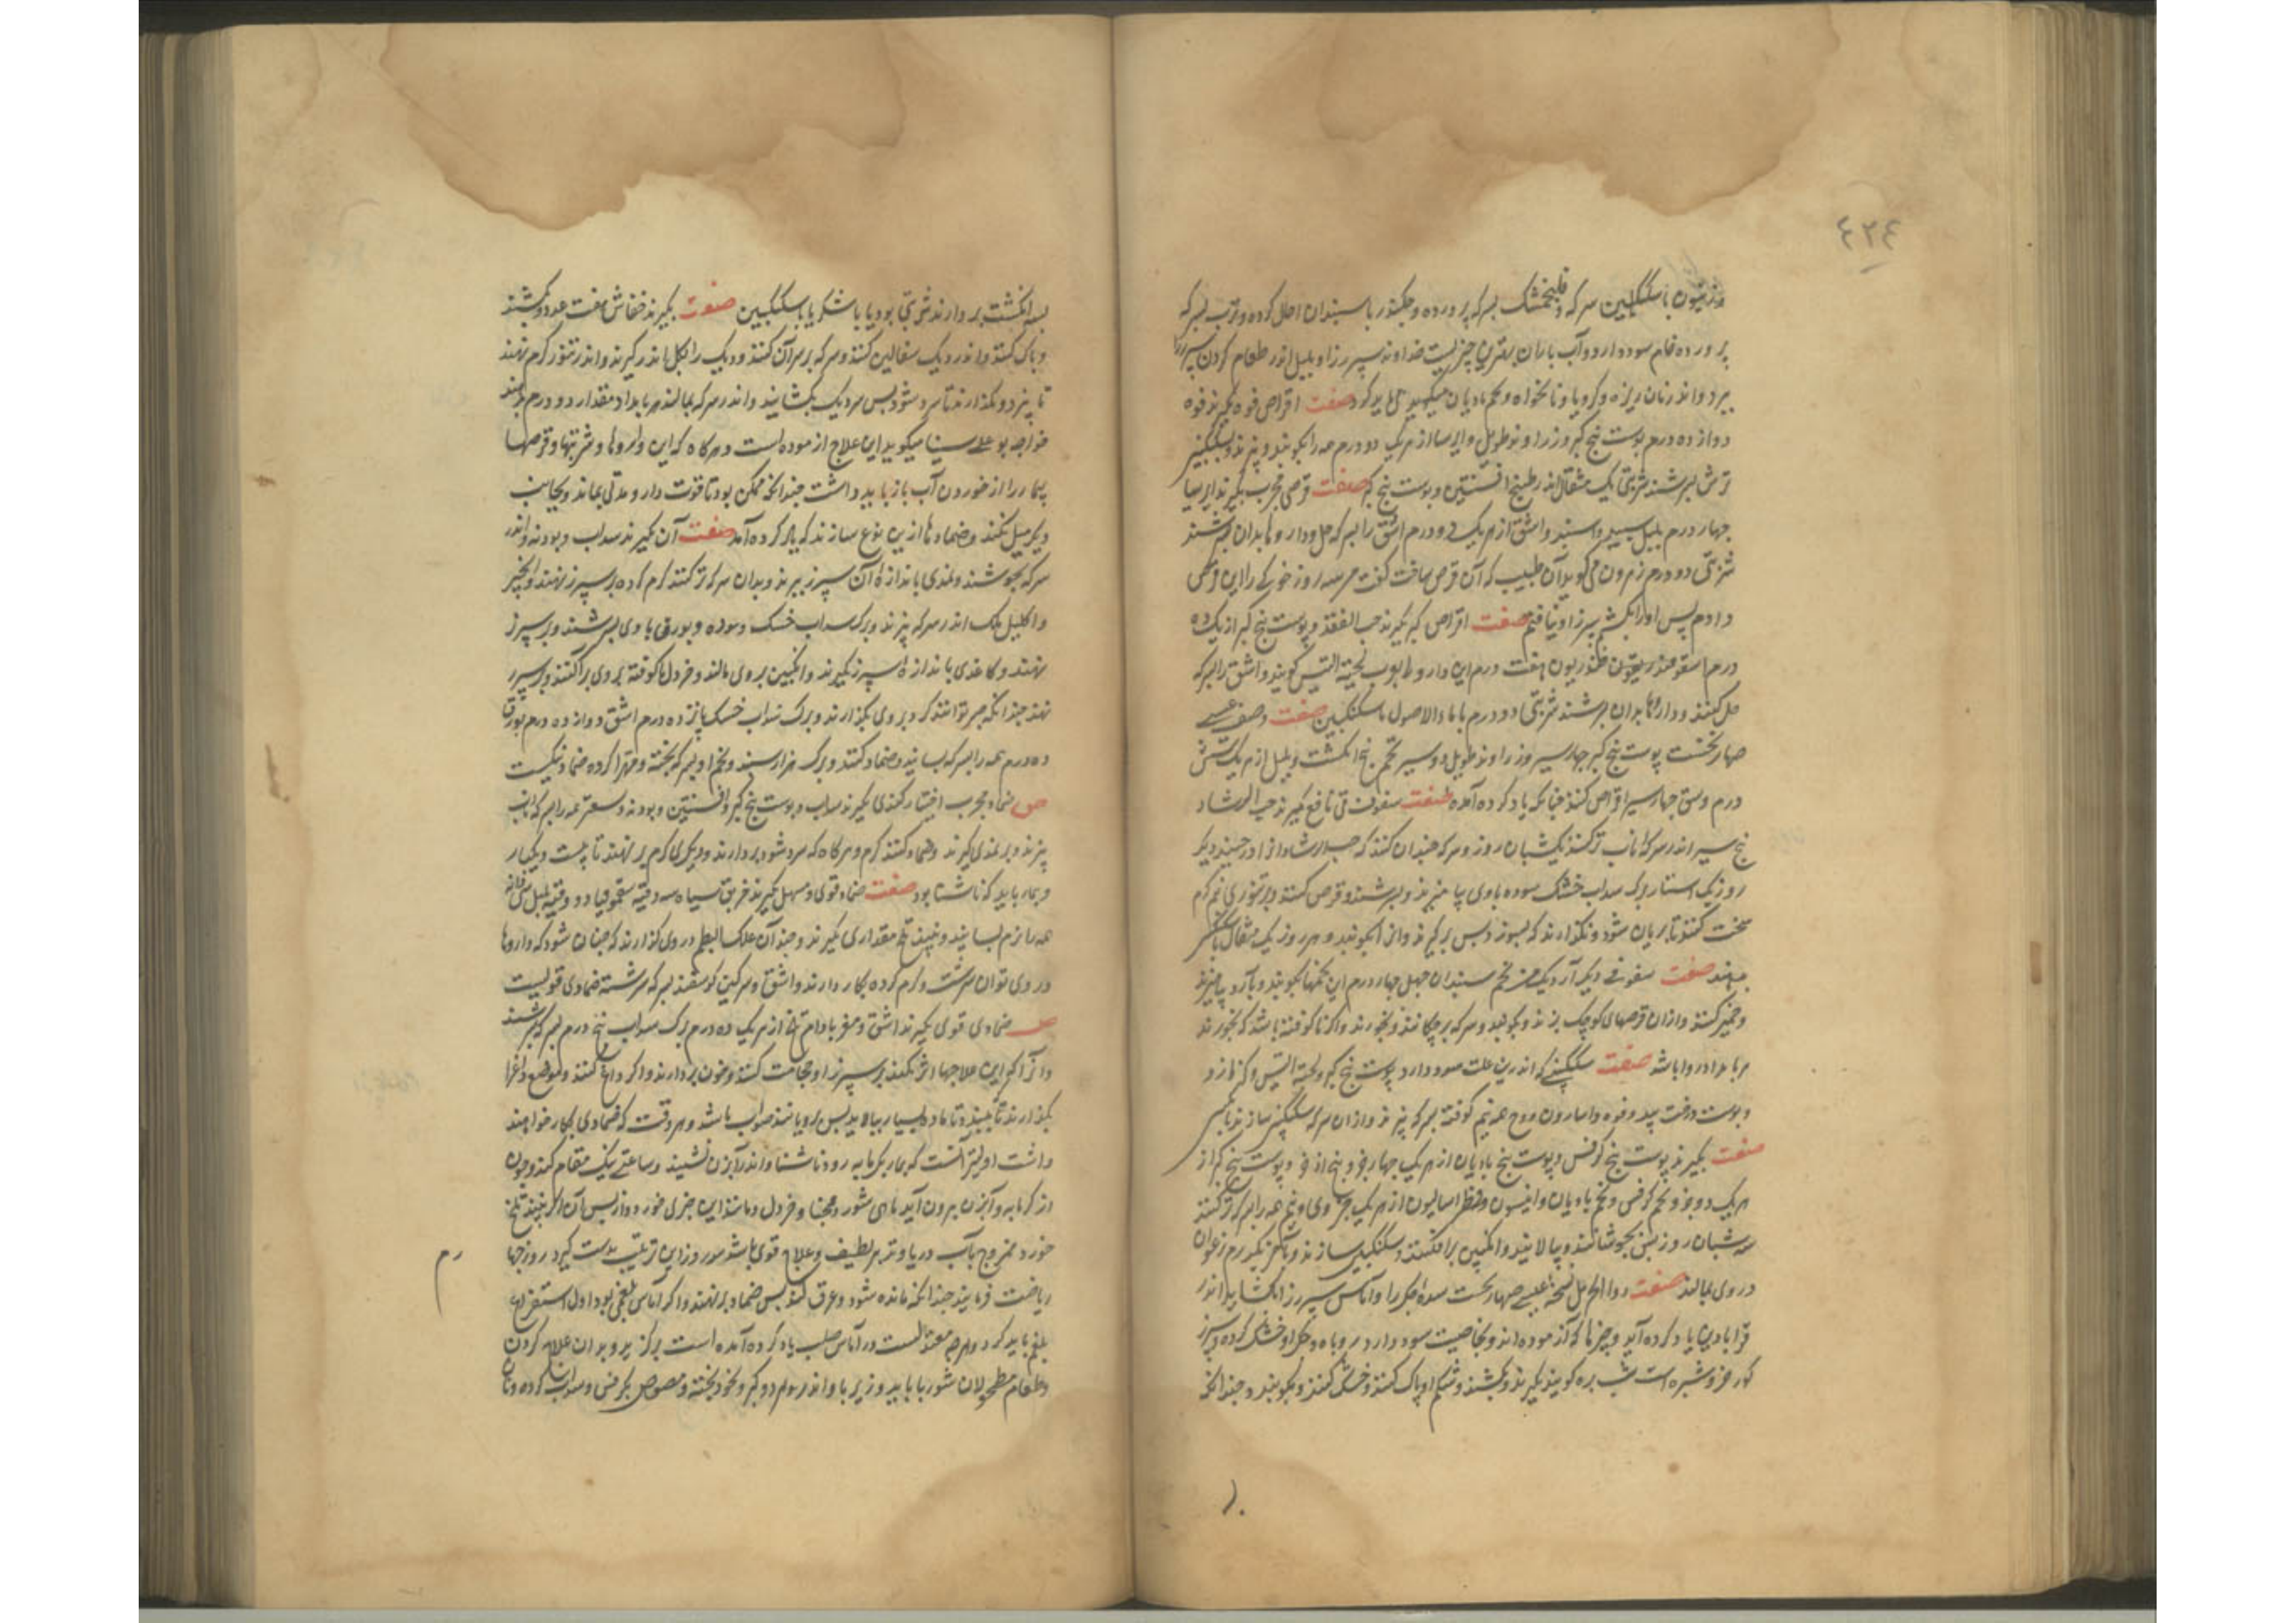 ٤٢٤
با سکنگبین سرکه و فلنجمشک بسرکه پرورده و چکندر با سپندان اصلاح کرده و ترب بسرکه
پرورده تمام سود دارد و آب باران بهترین چیزیست خداوند سپرز را و بلیل اندر طعام کردن سپرز را
ببرد و اندر نان ریزه و کرویا و نانخواه و تخم بادیان میکوبد عمل باید کرد صفت اقراص فوه بکیرند فوه
دوازده درم پوست بیخ کبر و زراوند طویل و ایرسا از هر یک دو درم همه را بکوبند و بپزند و بسکنگبین
ترش بسرشند شربتی یک مثقال اندر طبیخ افسنتین و پوست بیخ کبر صفت قرصی مجرب بکیرند ایرسا
چهار درم پلپل سپید و سنبل و اشق از هر یک دو درم اشق را بسرکه حل و داروها بدان بسرشند
شربتی دو درم می کوید آن طبیب که آن قرص ساخت کفت هر سه روز خوکی را این قرص
دادم پس او را بکشتم سپرز او نیافتم صفت اقراص کبر بکیرند حب الفقد و پوست بیخ کبر از یک ده
درم اسقولوقندریون هفت درم این دارو را بوب لحیة التیس کویند و اشق را بسرکه
حل کنند و داروها بدان بسرشند شربتی دو درم با ماء الاصول یا سکنگبین صفت وصف عیسی
صهاربخت پوست بیخ کبر چهار سیر و زراوند طویل دو سیر تخم بنج انکشت و پلپل از هر یک شش
درم و سی چهار سیر اقراص کنند چنانکه یاد کرده آمده صفت سفوف نافع بکیرند حب الرشاد
پنج سیر اندر سرکه ناب تر کنند یکشبان روز و سرکه چندان کنند که حب الرشاد از او درجنبد دیکر
روز یک استار برک سداب خشک سوده با وی بیامیزند و بسرشند و قرص کنند و بر تنوری نرم کرم
سخت کنند تا بریان شود و نکذارند که بسوزد پس برکیرند و از آن بکوبند و هر روز یک مثقال با سکنگبین
بدهند صفت سفوفی دیکر آرد یک من تخم سپندان چهل چهار درم این تخمها بکوبند و با آرد بیامیزند
و خمیر کنند و از آن قرصهای کوچک بزند و بکوبند و سرکه بر چکانند و بخورند و اکر ناکوفته باشد که بخورند
هر بامداد روا باشد صفت سکنگبینی که اندرین علت سود دارد پوست بیخ کبر و لحیة التیس و کزمازو
و پوست درخت بید و فوه و اسارون و وج همه نیم کوفته بسرکه بپزند و از آن سرکه سکنگبین سازند با عسل
صفت بکیرند پوست بیخ کرفس و پوست بیخ بادیان از هر یک چهار جزو و بیخ اذخر و پوست بیخ کبر از
هر یک دو جزو و تخم کرفس و تخم بادیان و انیسون و فطراسالیون از هر یک جزوی و نیم همه را بسرکه تر کنند
سه شبان روز پس بجوشانند و بپالایند و انکبین برافکنند و سکنگبین سازند و با آخر یکدرم زعفران
در وی بمالند صفت دواء الکرکم نسخه عیسی صهاربخت سده جکر را و آماس سپرز را بکشاید اندر
قرابادین یاد کرده آید و چیزها که آزموده اند و بخاصیت سود دارد روباه و شکل او خشک کرده و سپرز
کورخر و شبپره است شب پره کویند بکیرند و بکشند و شکم او پاک کنند و خشک کنند و بکوبند و چندانکه
بسه انکشت بردارند شربتی بود یا با شکر یا با سکنگبین صفت بکیرند خفاش هفت عدد و بکشند
و پاک کنند و اندر دیک سفالین کنند و سرکه بر سر آن کنند و دیک را بکل اندر کیرند و اندر تنور کرم نهند
تا بپزد و بکذارند تا سرد شود پس سر دیک بکشایند و اندر سرکه بمالند هر بامداد مقدار دو درم بدهند
خواجه بو علی سینا میکوید این علاج آزموده است و هر کاه که این داروها و شربتها و قرصها
بیمار را از خوردن آب باز باید داشت چندانکه ممکن بود تا قوت دارو مدتی بماند و بجانب
دیکر میل نکند و ضمادها ازین نوع سازند که یاد کرده آمد صفت آن بکیرند سداب و پودنه و اندر
سرکه بجوشند و نمدی باندازه آن سپرز ببرند و بدان سرکه تر کنند کرم کرده بر سپرز نهند و انجیر
و اکلیل ملک اندر سرکه بپزند و برک سداب خشک سوده و بورق با وی بسرشند و بر سپرز
نهند و کاغذی باندازه سپرز بکیرند و انکبین بر وی مالند و خردل ناکوفته بر وی پراکنند و بر سپرز
نهند چندانکه صبر توانند کرد بر وی بکذارند و برک سداب خشک پانزده درم اشق دوازده درم بورق
ده درم همه را بسرکه بسایند و ضماد کنند و برک هزار سپند و تخم او بسرکه پخته و مهرا کرده ضماد نیکست
ص ضماد مجرب اختیار کندی بکیرند سداب و پوست بیخ کبر و افسنتین و پودنه و سعتر همه را بسرکه ناب
بپزند و بر نمدی کیرند و ضماد کنند کرم و هر کاه که سرد شود بردارند و دیکری کرم بر نهند تا بیست و یکبار
و بیمار باید که ناشتا بود صفت ضماد قوی و مسهل بکیرند خربق سیاه سه وقیه سقمونیا دو وقیه پلپل سی دانه
همه را نرم بسایند و پنبه تلخ مقداری بکیرند و چند آن علک البطم در وی کذارند که چنان شود که داروها
در وی توان سرشت و کرم کرده بکار دارند و اشق و سرکین کوسفند بسرکه سرشته ضمادی قویست
ص ضمادی قوی بکیرند اشق و مغز بادام تلخ از هر یک ده درم برک سداب پنج درم بسرکه بسرشند
و آنرا کم این علاجها اثر نکند بر سپرز او حجامت کنند و خون بردارند و اکر داغ کنند و موضع داغ را
بکذارند تا ببندد تا ماده بسیار بپالاید پس برویانند صواب باشد و هر وقت که ضمادی بکار خواهند
داشت اولیتر آنست که بیمار بکرمابه رود ناشتا و اندر آبزن نشیند و ساعتی نیک مقام کند و چون
از کرمابه و آبزن بیرون آید ماهی شور و خردل و مانند این چیزی خورد و از پس آن اکر نبیند تلخ
خورد ممزوج بآب دریا و تدبیر لطیف و علاج قوی باشد سه روز این ترتیب بدست کیرد روزچها
ریاضت فرمایند چندانکه مانده شود و عرق کند پس ضماد برنهند و اکر آماس بلغمی بود اول استفراغ
بلغم باید کرد و هرچه معتدلست در آماس صلب یاد کرده آمده است برکزیرد و بدان علاج کردن
و طعام مطحولان شوربا باید و زیرباو اندر سوم دو کبر و نخود پخته و مصوص بکرفس و سداب کرده و نان